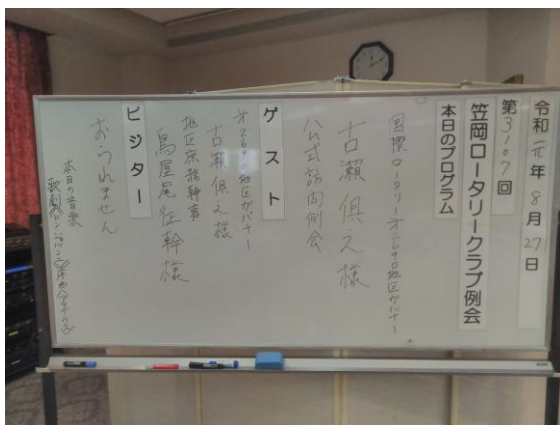 令和元年8月27日
第3107回
笠岡ロータリークラブ例会
本日のプログラム
国際ロータリー第2690地区ガバナー
古瀬俱之様
公式訪問例会
ゲスト
第2690地区ガバナー
古瀬俱之様
地区
幹事
鳥屋尾征幹様
ビジター
おられません
本日の音楽
歌劇